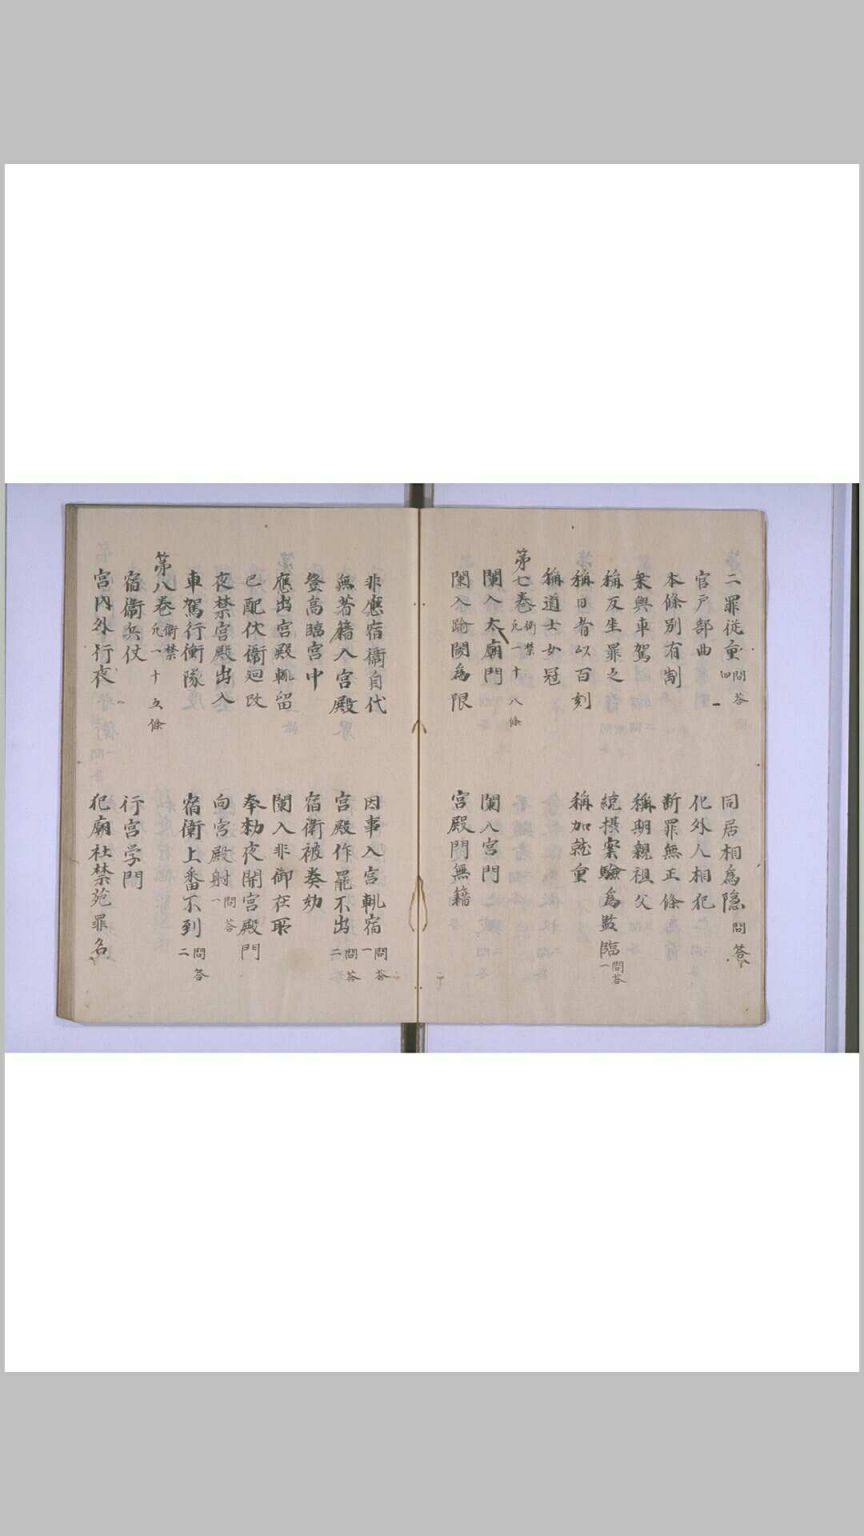 二罪従重 問答四
同居相為隠 問答一
官戸部曲
化外人相犯
本條別有制
断罪無正條
乗輿車駕
稱期親祖父
稱反坐罪之
統摂案驗為監臨 問答一
稱日者以百刻
稱加就重
稱道士女冠
第七卷 衛禁 凡一十八條
闌入太廟門
闌入宮門
闌入踰閾為限
宮殿門無籍
非應宿衞自代
因事入宮輒宿 問答一
無著籍入宮殿
宮殿作罷不出 問答二
登高臨宮中
宿衛被奏劾
應出宮殿輒留
闌入非御在所
已配仗衞迴改
奉勅夜開宮殿門
夜禁宮殿出入
向宮殿射 問答一
車駕行衝隊
宿衛上番不到 問答二
第八卷 衛禁 凡一十五條
宿衞兵仗
行宮学門
宮内外行夜
犯廟社禁苑罪名